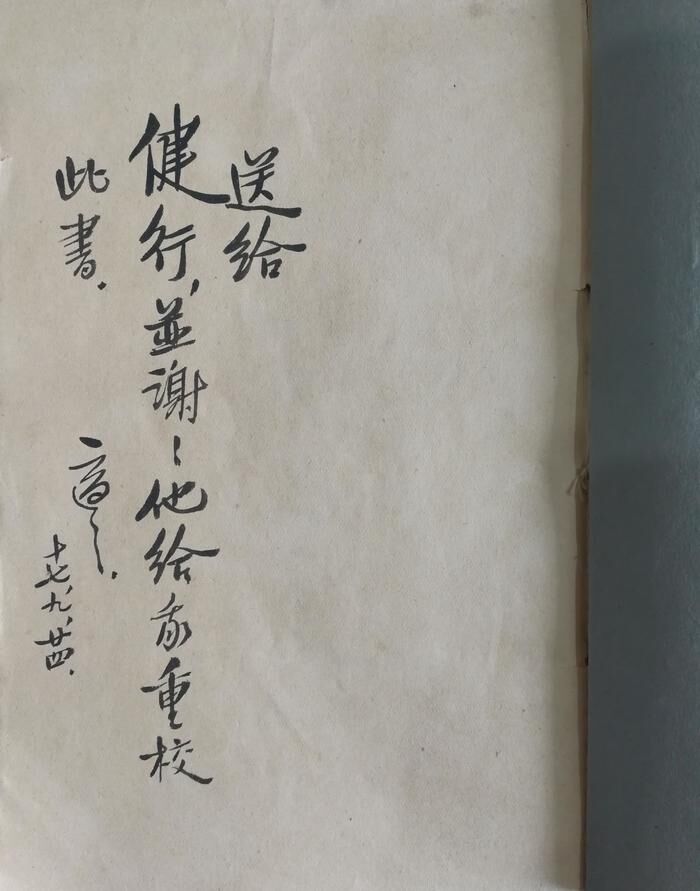 送给
健行，並謝〻他给我重校
此書．
適之．
十七、九、廿四．